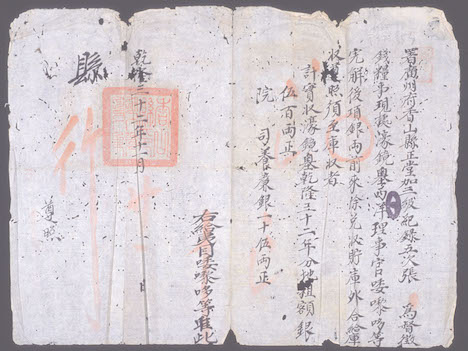 署廣州府香山縣正堂加三級紀錄五次張　為督徵
錢糧事現據濠鏡澳西洋理事官唩嚟哆等
完解後項銀兩前來除兌收貯庫外合給庫
收執照須至庫收者
計實收濠鏡澳乾隆三十二年分地租額銀
伍百兩正
院　司養廉銀一十伍兩正
右給夷目唩嚟哆等准此
乾隆三十二年　月
縣
行
遵照